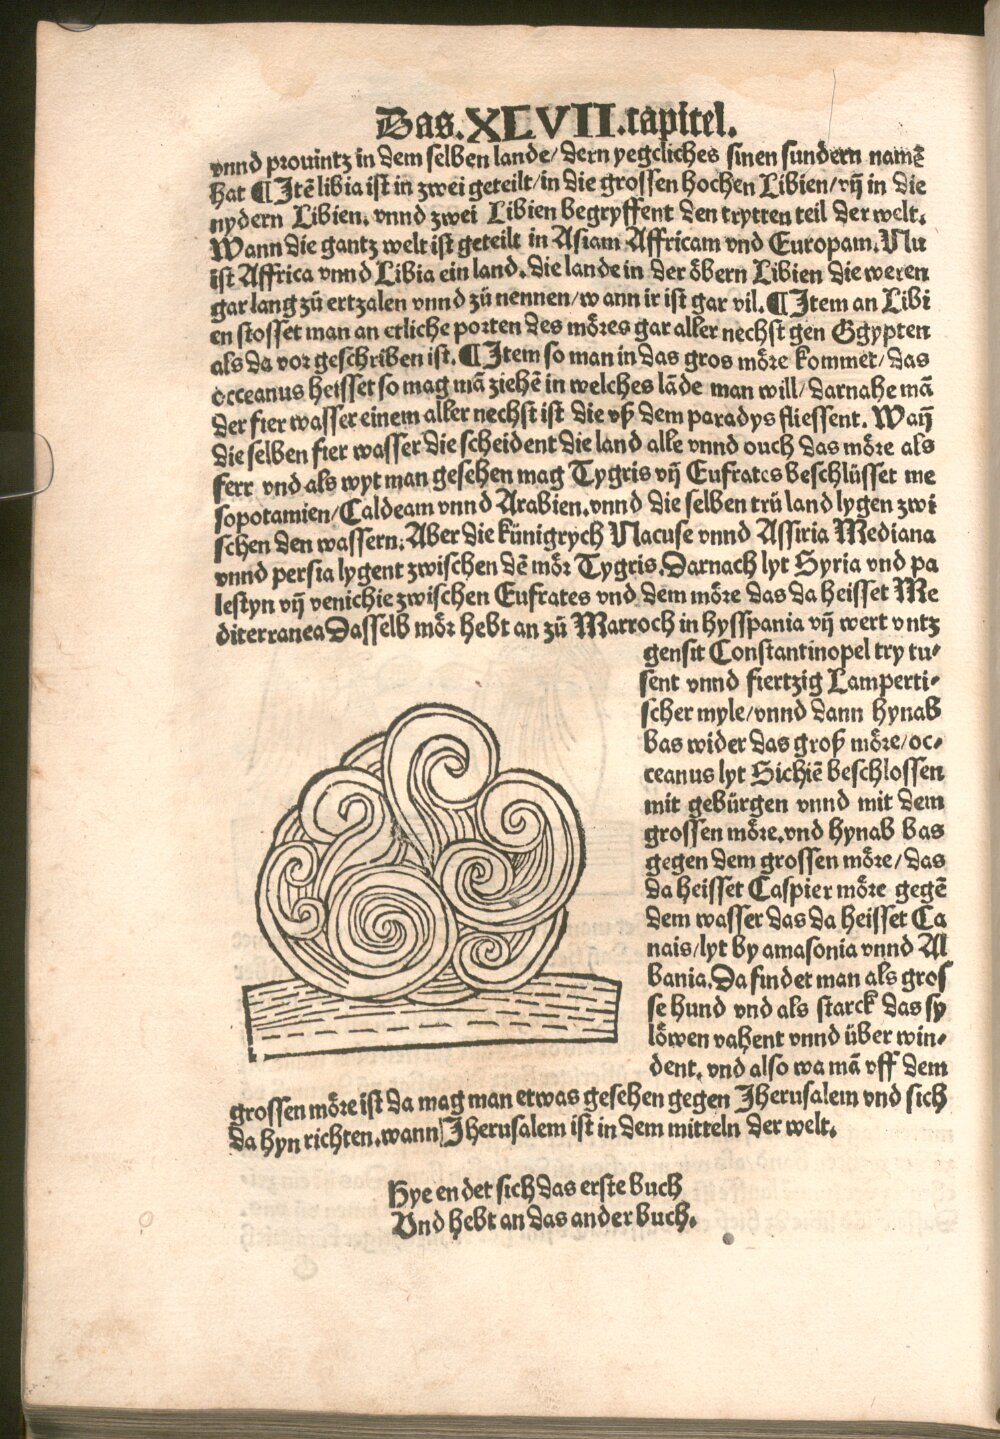 Das.XLVII.capitel.
vnnd prouintz in dem selben lande/dern yegcliches sinen sundern namē
hat ¶Itē libia ist in zwei geteilt/in die grossen hochen Libien/vn̄ in die
nydern Libien. vnnd zwei Libien begryffent den trytten teil der welt.
Wann die gantz welt ist geteilt in Asiam Affricam vnd Europam. Nu
ist Affrica vnnd Libia ein land. die lande in der öbern Libien die weren
gar lang zů ertzalen vnnd zů nennen/wann ir ist gar vil.¶Item an Libi
en stosset man an etliche porten des möres gar aller nechst gen Egypten
als da vor geschriben ist.¶Item so man in das gros möre kommet/das
occeanus heisset so mag mā ziehē in welches lāde man will/darnahe mā
der fier wasser einem aller nechst ist die vß dem paradys fliessent. Wan̄
die selben fier wasser die scheident die land alle vnnd ouch das möre als
ferr vnd als wyt man gesehen mag Tygris vn̄ Eufrates beschlüsset me
sopotamien/Caldeam vnnd Arabien.vnnd die selben trü land lygen zwi
schen den wassern.Aber die künigrych Nacuse vnnd Assiria Mediana
vnnd persia lygent zwischen dē mör Tygris.Darnach lyt Syria vnd pa
lestyn vn̄ venichie zwischen Eufrates vnd dem möre das da heisset Me
diterranea Dasselb mör hebt an zů Marroch in hysspania vn̄ wert vntz
gensit Constantinopel try tu-
sent vnnd fiertzig Lamperti-
scher myle/vnnd dann hynab
bas wider das groß möre/oc-
ceanus lyt Sichiē beschlossen
mit gebürgen vnnd mit dem
grossen möre.vnd hynab bas
gegen dem grossen möre/das
da heisset Caspier möre gegē
dem wasser das da heisset Ca
nais/lyt by amasonia vnnd Al
bania.Da findet man als gros
se hund vnd als starck das sy
löwen vahent vnnd über win-
dent. vnd also wa mā vff dem
grossen möre ist da mag man etwas gesehen gegen Jherusalem vnd sich
da hyn richten.wann Jherusalem ist in dem mitteln der welt.
Hye endet sich das erste buch
Vnd hebt an das ander buch.